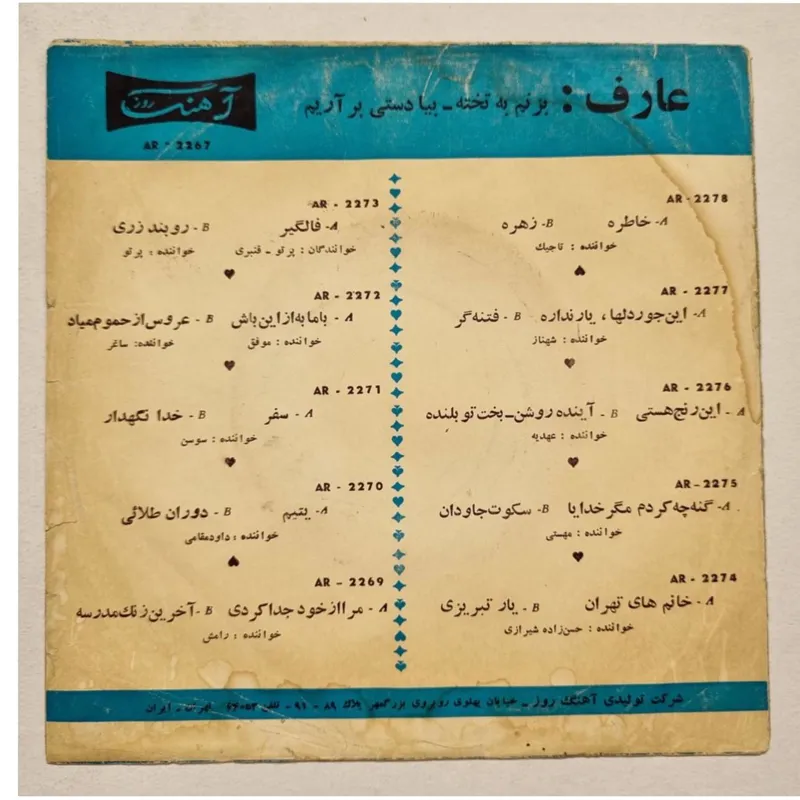 عارف : بزنم به تخته ـ بیا دستی بر آریم
آهنگ روز
AR - 2267
AR - 2278
A- خاطره B- زهره
خواننده : تاجیک
AR - 2277
A- این جور دلها، یار نداره B - فتنه گر
خواننده : شهناز
AR - 2276
A- این رنج هستی B - آینده روشن ـ بخت تو بلنده
خواننده : عهدیه
AR - 2275
A- گنه چه کردم مگر خدایا B- سکوت جاودان
خواننده : مهستی
AR - 2274
A- خانم های تهران B - یار تبریزی
خواننده : حسن زاده شیرازی
AR - 2273
A- فالگیر B - روبند زری
خوانندگان : پرتو ـ قنبری خواننده : پرتو
AR - 2272
A - باما به از این باش B - عروس از حموم میاد
خواننده : موفق خواننده: ساغر
AR - 2271
A - سفر B - خدا نگهدار
خواننده : سوسن
AR - 2270
A- یقیم B - دوران طلائی
خواننده : داود مقامی
AR - 2269
A - مرا از خود جدا کردی B - آخرین زنگ مدرسه
خواننده : رامش
شرکت تولیدی آهنگ روز ـ خیابان پهلوی روبروی بزرگمهر پلاک ۸۹ - ۹۱ - تلفن ۶۴۰۵۳ تهران ـ ایران